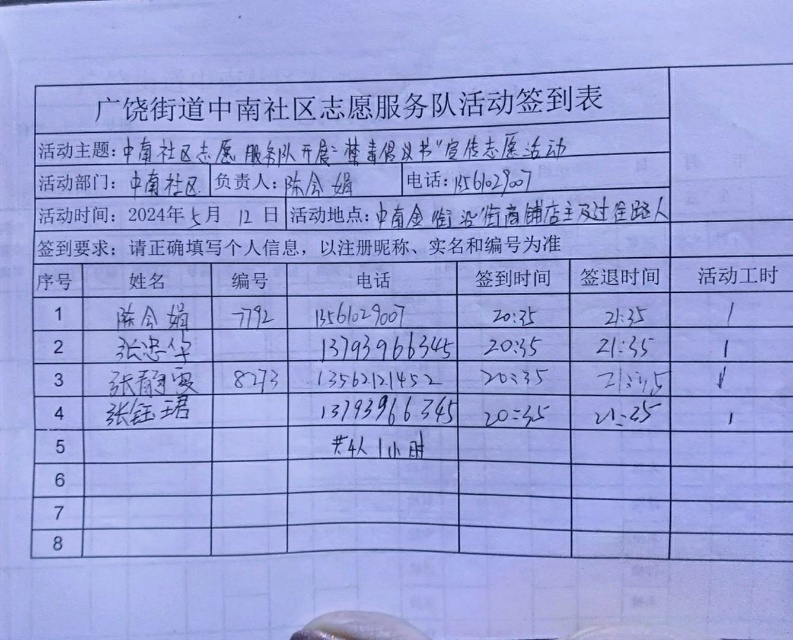 广饶街道中南社区志愿服务队活动签到表
活动主题:中南社区志愿服务队开展"禁毒倡议书"宣传志愿活动
活动部门:中南社区 负责人:陈会娟 电话:13561029007
活动时间:2024年5月12日 活动地点:中南金街沿街商铺店主及过往路人
签到要求:请正确填写个人信息,以注册昵称、实名和编号为准
序号 姓名 编号 电话 签到时间 签退时间 活动工时
1 陈会娟 7792 13561029007 20:35 21:35 1
2 张忠华 13793966345 20:35 21:35 1
3 张静霞 8273 13562121452 20:35 21:35 1
4 张钰珺 13793966345 20:35 21:35 1
5 共4人1小时
6
7
8